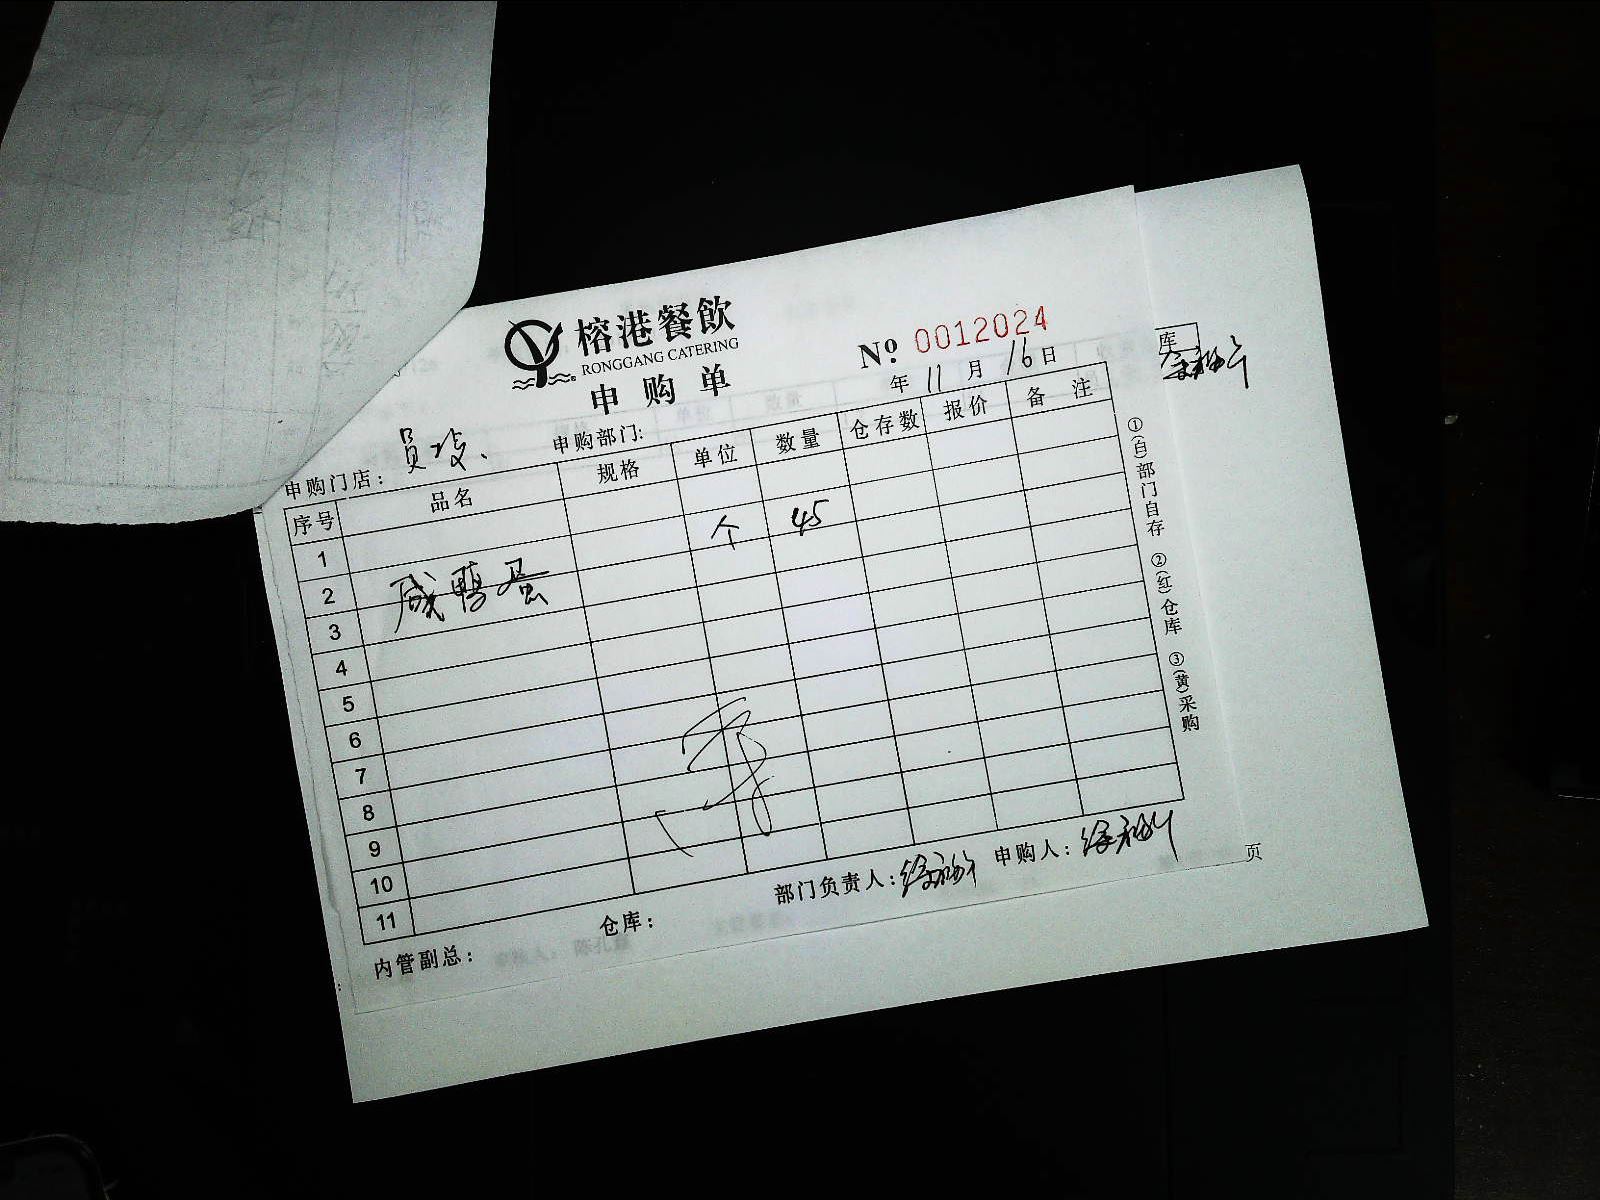 榕港餐飲
RONGGANG CATERING
申购单
№ 0012024
年 11 月 16 日
库
申购门店：
申购部门:
序号 品名 规格 单位 数量 仓存数 报价 备注
1
2 咸鸭蛋 个 45
3
4
5
6
7
8
9
10
11
①(白)部门自存 ②(红)仓库 ③(黄)采购
内管副总：
仓库：
部门负责人:
申购人:
页